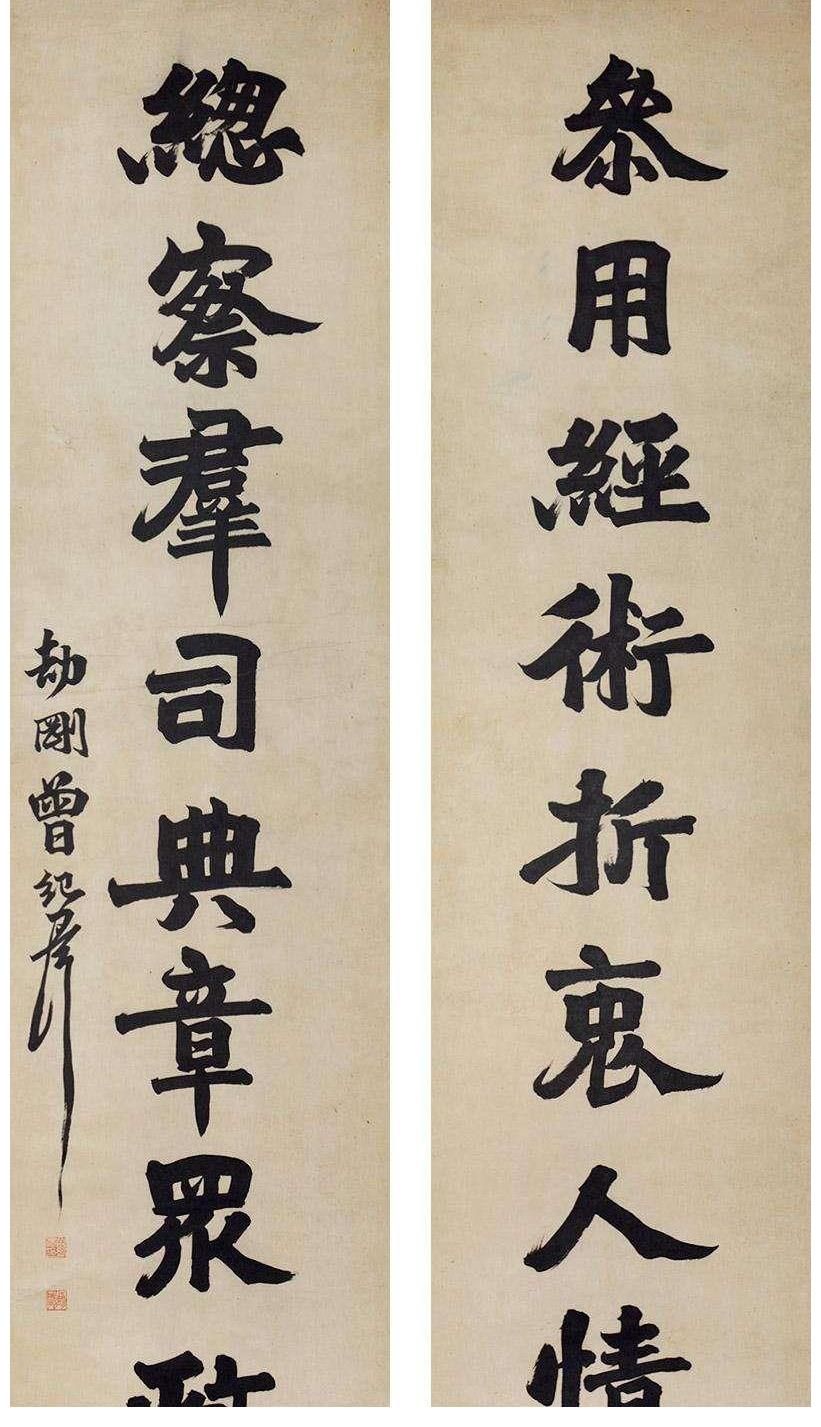 叅用經術折衷人情
總察羣司典章眾政
劼剛曾紀澤